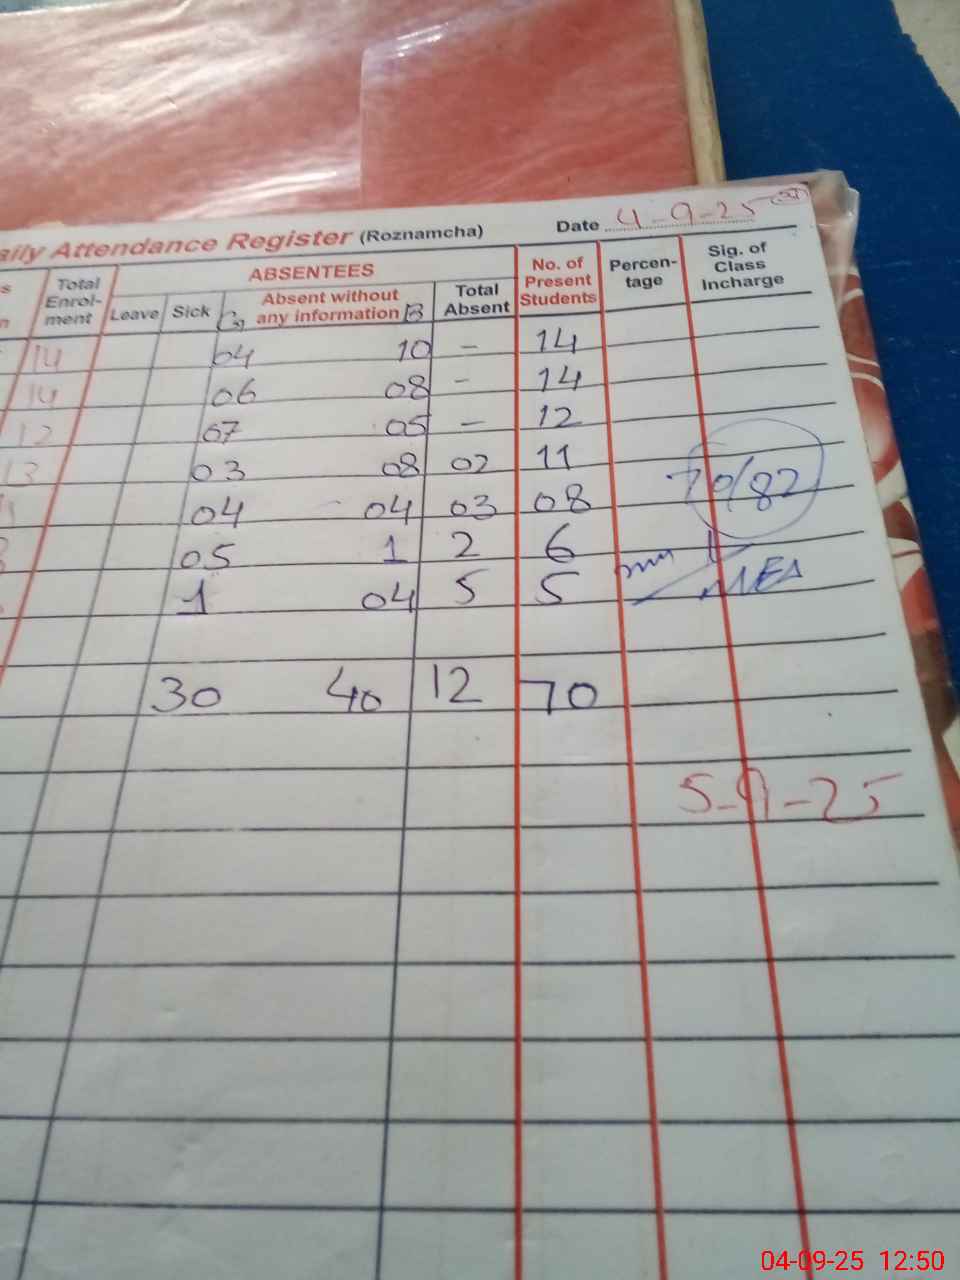 aily Attendance Register (Roznamcha) Date 4-9-25
Total Enrol-ment ABSENTEES No. of Present Students Percen-tage Sig. of Class Incharge
Leave Sick G Absent without any information B Total Absent
14 04 10 - 14
14 06 08 - 14
12 07 05 - 12
13 03 08 02 11
04 04 03 08
05 1 2 6
1 04 5 5
70/82
MEA
30 40 12 70
5-9-25
04-09-25 12:50